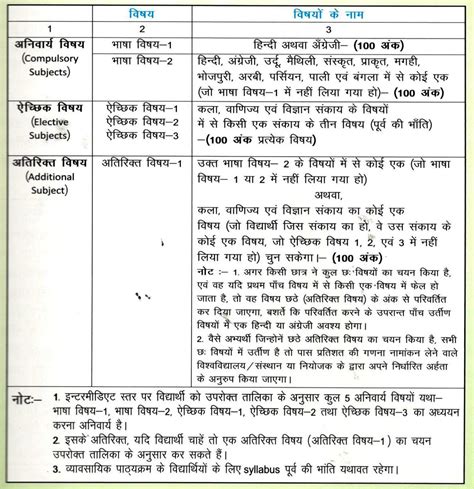 विषय विषयों के नाम
1 2 3
अनिवार्य विषय भाषा विषय–1 हिन्दी अथवा अँग्रेजी– (100 अंक)
(Compulsory भाषा विषय–2 हिन्दी, अंग्रेजी, उर्दू, मैथिली, संस्कृत, प्राकृत, मगही,
Subjects) भोजपुरी, अरबी, पर्सियन, पाली एवं बंगला में से कोई एक
(जो भाषा विषय–1 में नहीं लिया गया हो)– (100 अंक)
ऐच्छिक विषय ऐच्छिक विषय–1 कला, वाणिज्य एवं विज्ञान संकाय के विषयों
(Elective ऐच्छिक विषय–2 में से किसी एक संकाय के तीन विषय (पूर्व की भाँति)
Subjects) ऐच्छिक विषय–3 –(100 अंक प्रत्येक विषय)
अतिरिक्त विषय अतिरिक्त विषय–1 उक्त भाषा विषय– 2 के विषयों में से कोई एक (जो भाषा
(Additional विषय– 1 या 2 में नहीं लिया गया हो)
Subject) अथवा,
कला, वाणिज्य एवं विज्ञान संकाय का कोई एक
विषय (जो विद्यार्थी जिस संकाय का हो, वे उस संकाय के
कोई एक विषय, जो ऐच्छिक विषय 1, 2, एवं 3 में नहीं
लिया गया हो) चुन सकेगा।– (100 अंक)
नोट :– 1. अगर किसी छात्र ने कुल छः विषयों का चयन किया है,
एवं वह यदि प्रथम पाँच विषय में से किसी एक विषय में फेल हो
जाता है, तो वह विषय छठे (अतिरिक्त विषय) के अंक से परिवर्तित
कर दिया जाएगा, बशर्ते कि परिवर्तित करने के उपरान्त पाँच उर्तीण
विषयों में एक हिन्दी या अंग्रेजी अवश्य होगा।
2. वैसे अभ्यर्थी जिन्होनें छठे अतिरिक्त विषय का चयन किया है, सभी
छः विषयों में उर्तीण है तो पास प्रतिशत की गणना नामांकन लेने वाले
विश्वविद्यालय/संस्थान या नियोजक के द्वारा अपने निर्धारित अर्हता
के अनुरुप किया जाएगा।
नोटः– 1. इन्टरमीडिएट स्तर पर विद्यार्थी को उपरोक्त तालिका के अनुसार कुल 5 अनिवार्य विषयों यथा–
भाषा विषय–1, भाषा विषय–2, ऐच्छिक विषय–1, ऐच्छिक विषय–2 तथा ऐच्छिक विषय–3 का अध्ययन
करना अनिवार्य है।
2. इसके अतिरिक्त, यदि विद्यार्थी चाहें तो एक अतिरिक्त विषय (अतिरिक्त विषय–1) का चयन
उपरोक्त तालिका के अनुसार कर सकते हैं।
3. व्यावसायिक पाठ्यक्रम के विद्यार्थियों के लिए syllabus पूर्व की भांति यथावत रहेगा।